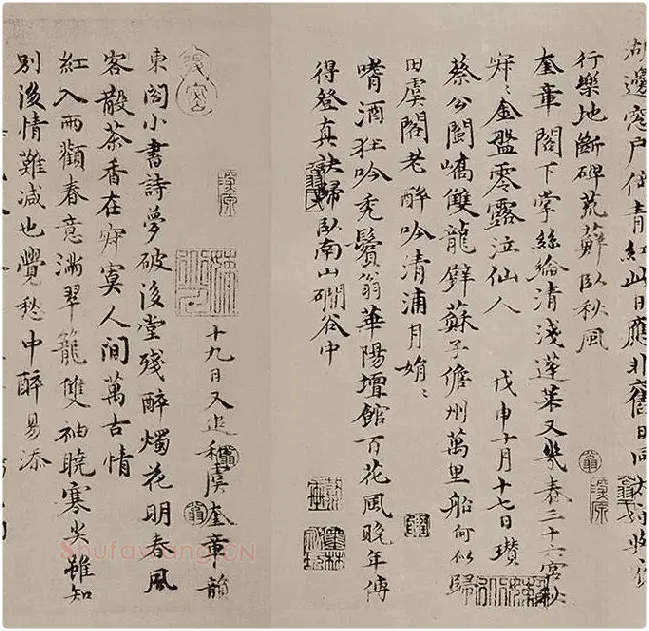 湖邊窓戶倚青紅此日應非舊日同
行樂地斷碑荒蘚臥秋風
奎章閣下掌絲綸清淺蓬萊又幾春三十六宮秋
寂〻金盤零露泣仙人 戊申十月十七日瓚
蔡公閩嶠雙龍璧蘇子儋州萬里船何似歸
田虞閣老醉吟清浦月娟〻
嗜酒狂吟禿鬢翁華陽壇館百花風晚年傳
得登真訣歸臥南山磵谷中
十九日又追和虞奎章韻
東閣小書詩夢破後堂殘醉燭花明春風
客散茶香在寂寞人間萬古情
紅入兩顴春意滿翠籠雙袖曉寒尖雖知
別後情難減也覺愁中醉易添
Shufawang.CN